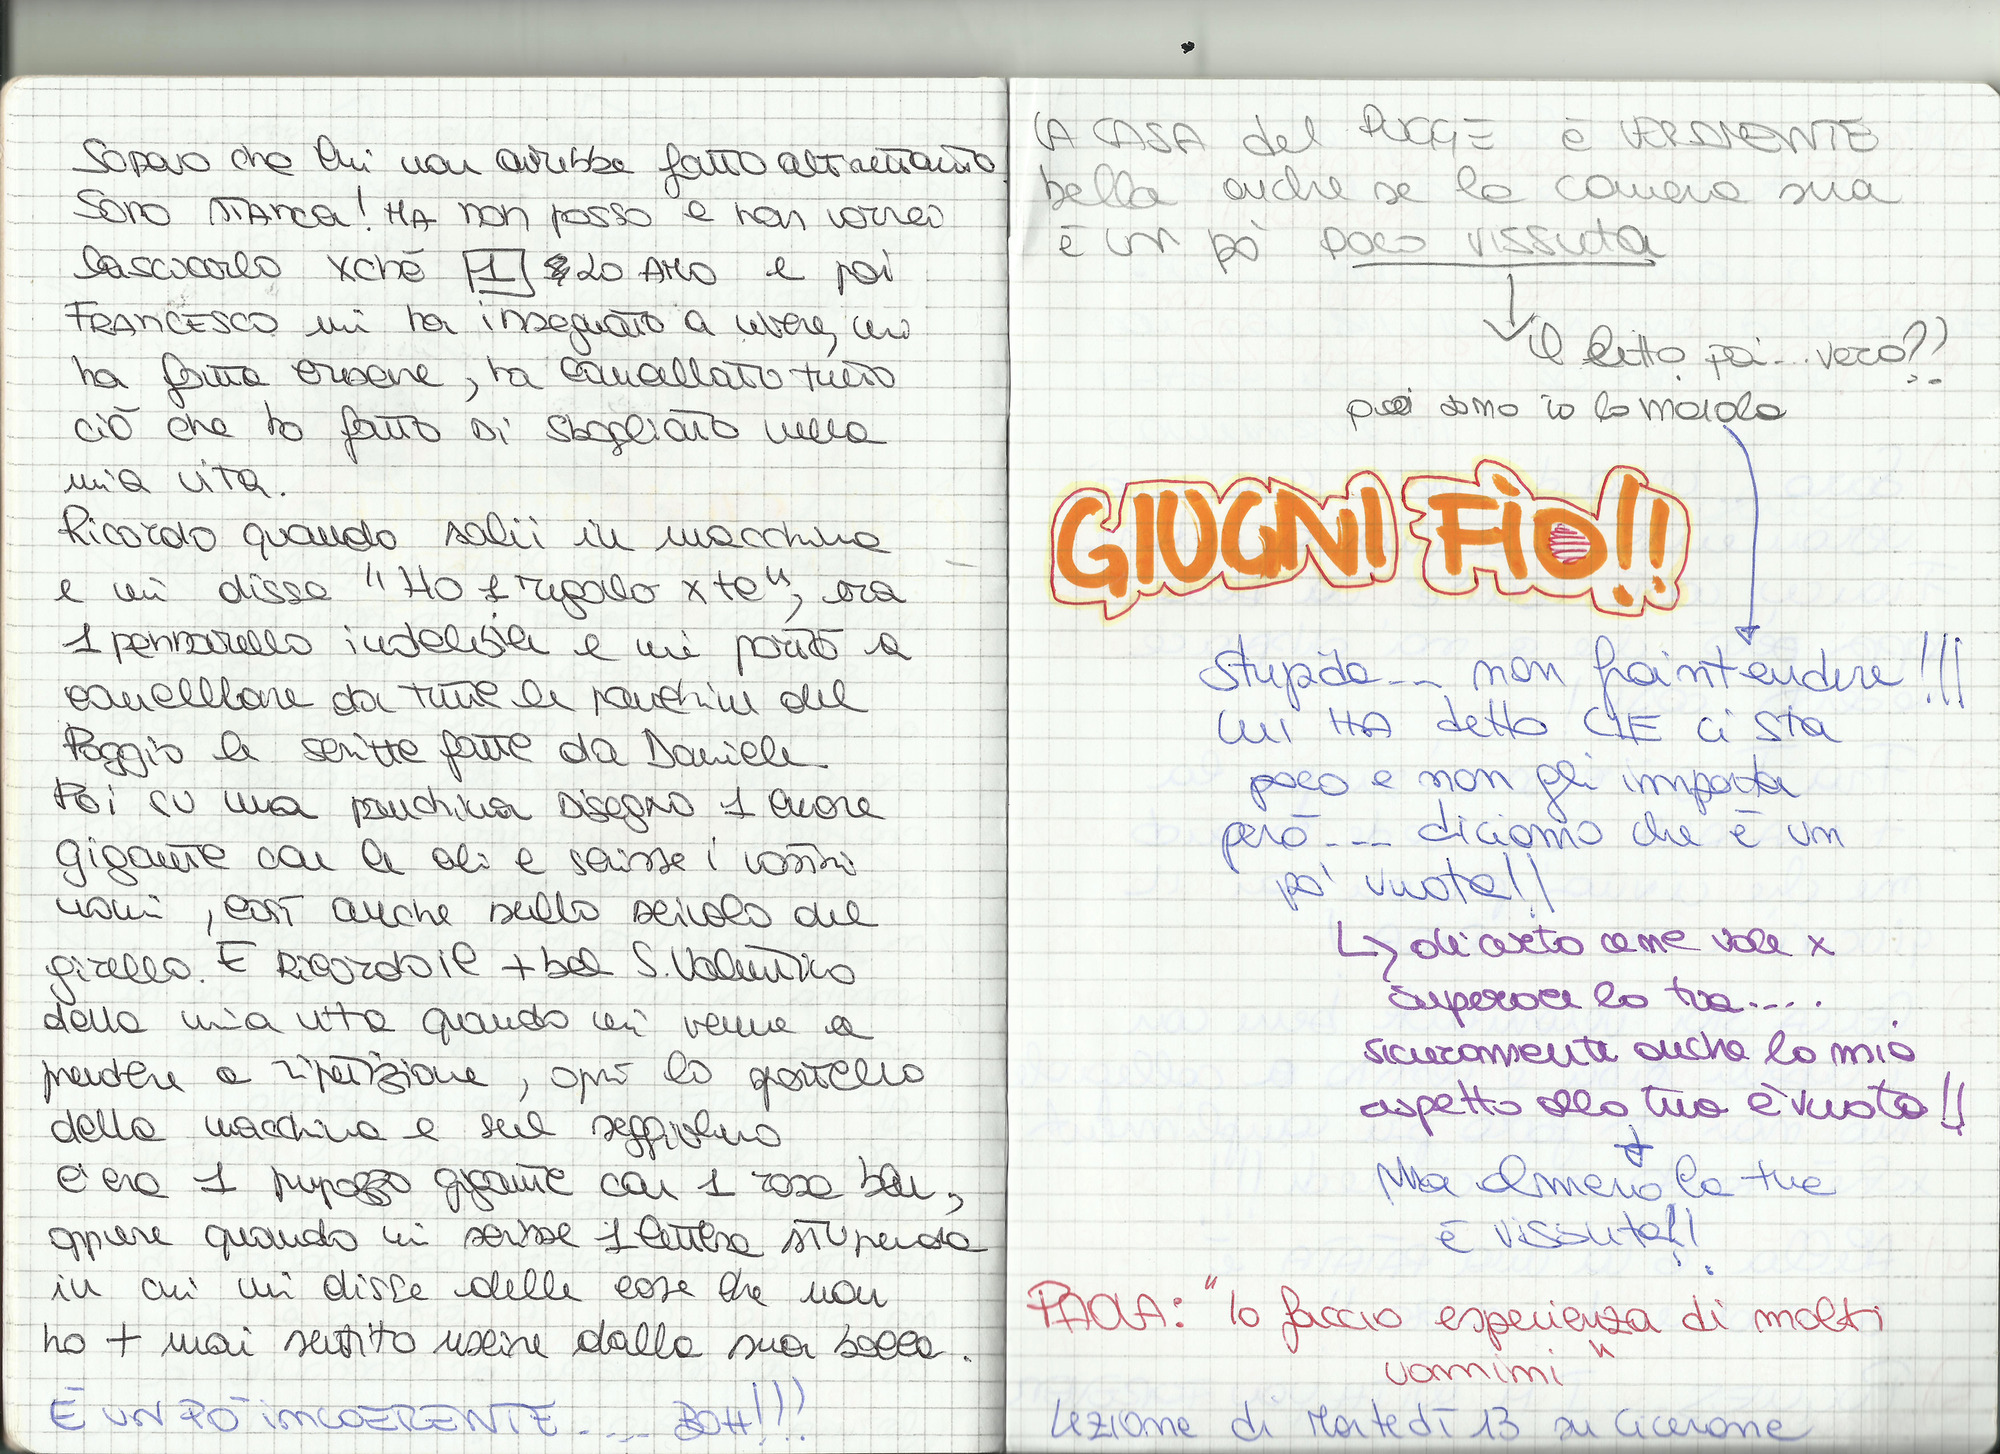 Sapevo che lui non avrebbe fatto altrettanto
Sono STANCA! MA non posso e non vorrei
lasciarlo xchè 1 LO AMO e poi
FRANCESCO mi ha insegnato a vivere, mi
ha fatta crescere, ha cancellato tutto
ciò che ho fatto di sbagliato nella
mia vita.
Ricordo quando salii in macchina
e mi disse "Ho 1 regalo x te", era
1 pennarello indelebile e mi portò a
cancellare da tutte le panchine del
Poggio le scritte fatte da Daniele.
Poi su una panchina disegnò 1 cuore
gigante con le ali e scrisse i nostri
nomi, così anche sullo scivolo del
girello. E Ricordo il + bel S. Valentino
della mia vita quando mi venne a
prendere a ripetizione, aprì lo sportello
della macchina e sul seggiolino
c'era 1 pupazzo gigante con 1 rosa blu,
oppure quando mi scrisse 1 lettera stupenda
in cui mi disse delle cose che non
ho + mai sentito uscire dalla sua bocca.
È UN PÒ INCOERENTE.... BOH!!!
LA CASA del PUGGE è VERAMENTE
bella anche se la camera sua
è un pò poco vissuta
il letto poi... vero??
poi sono io la maiala
GIUGNI FÌO!!
Stupida... non fraintendere!!!
lui HA detto CHE ci sta
poco e non gli importa
però... diciamo che è un
pò vuota!!
di certo come vole x
superare la tua....
sicuramente anche la mia
aspetto alla tua è vuota!!
Ma almeno la tua
è vissuta!!
PAOLA: "Io faccio esperienza di molti
uomini"
Lezione di Martedì 13 su Cicerone